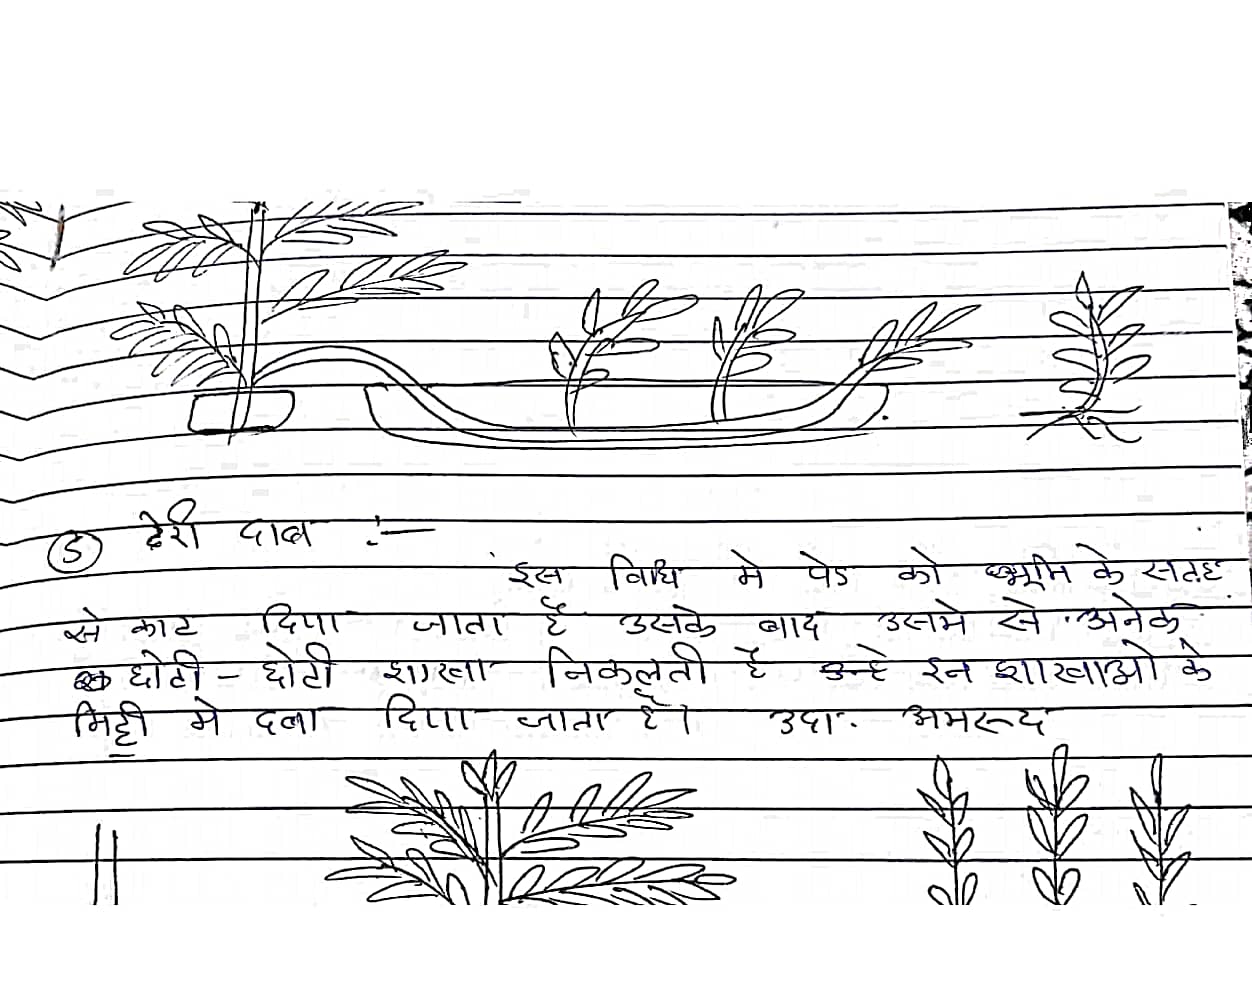 ⑤ ढेरी दाब :-
इस विधि मे पेड को भूमि के सतह
से काट दिया जाता है उसके बाद उसमे से अनेक
छोटी - छोटी शाखा निकलती है इन शाखाओ के
मिट्टी मे दबा दिया जाता है। उदा. अमरूद